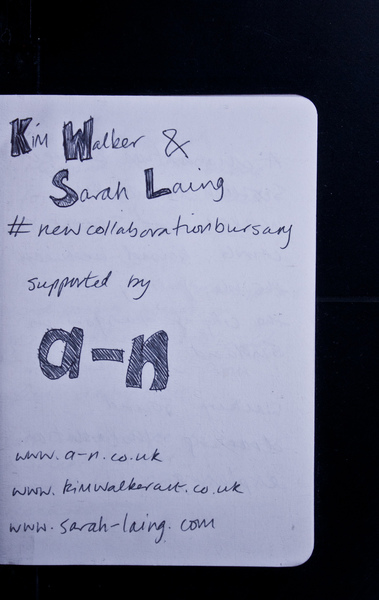 Kim Walker &
Sarah Laing
#newcollaborationbursary
supported by
a-n
www.a-n.co.uk
www.kimwalkerart.co.uk
www.sarah-laing.com